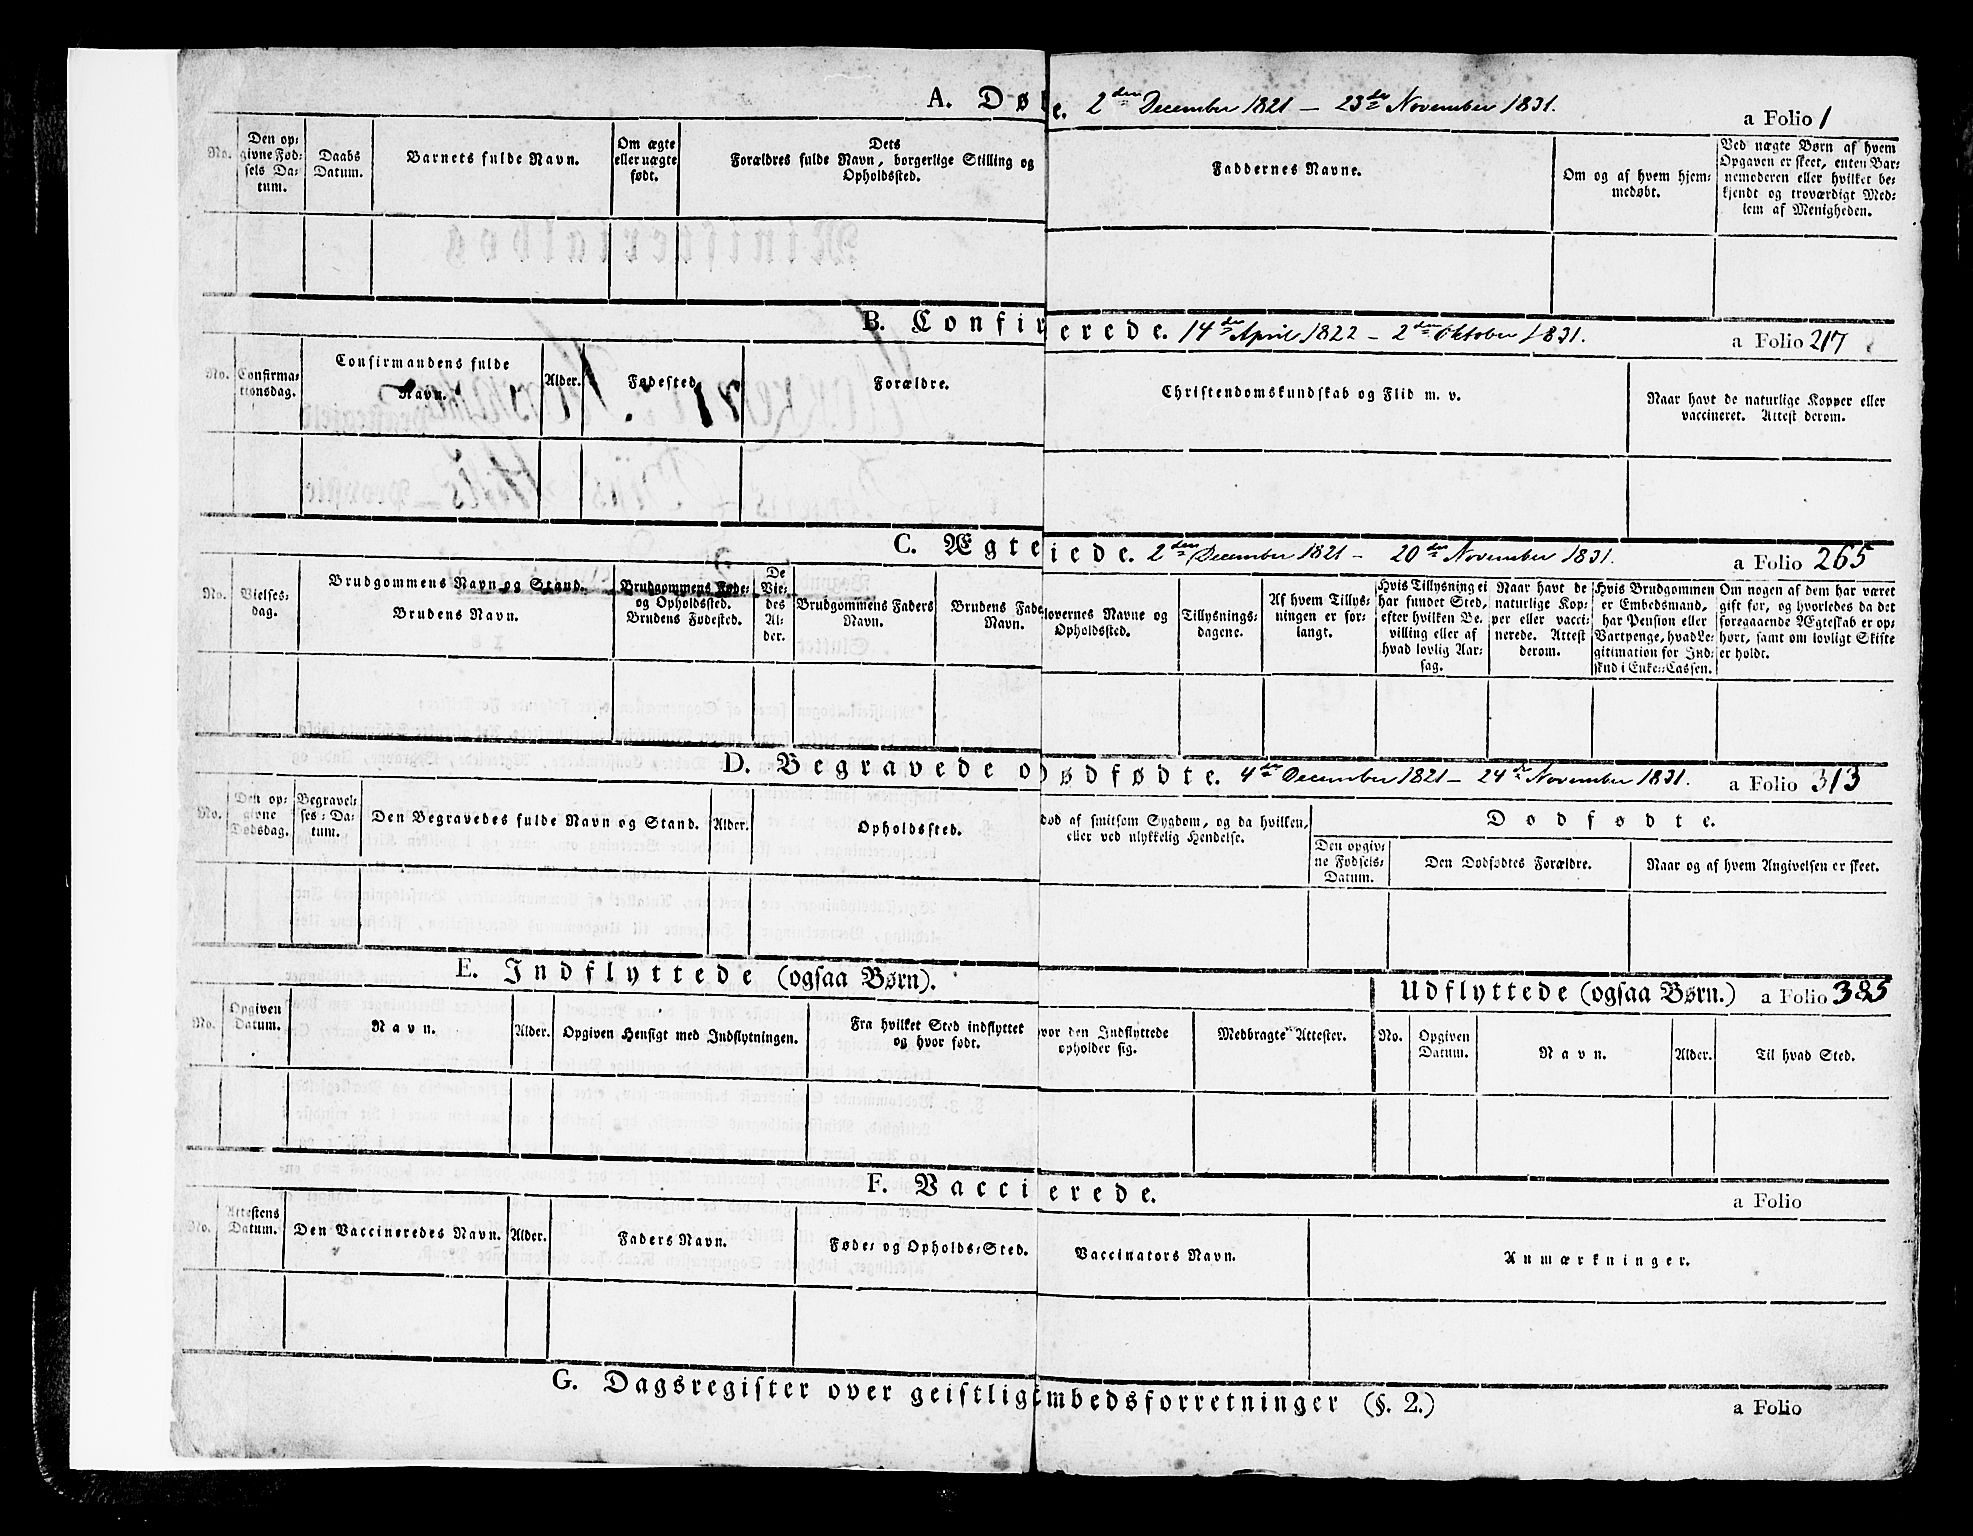 A. Døb e. 2den December 1821 – 23de November 1831. a Folio 1
No.
Den op-
givne Fød-
sels Da-
tum.
Daabs
Datum.
Barnets fulde Navn.
Om ægte
eller uægte
født.
Dets
Forældres fulde Navn, borgerlige Stilling og
Opholdssted.
Faddernes Navne.
Om og af hvem hjem-
medøbt.
Ved uægte Børn af hvem
Opgaven er skeet, enten Bar-
nemoderen eller hvilket be-
kjendt og troværdigt Med-
lem af Menigheden.
B. Confirmerede. 14de April 1822 – 2den Oktober 1831. a Folio 217
No.
Confirma-
tionsdag.
Confirmandens fulde
Navn.
Alder.
Fødested
Forældre.
Christendomskundskab og Flid m. v.
Naar havt de naturlige Kopper eller
vaccineret. Attest derom.
C. Ægteviede. 2den December 1821 – 20de November 1831. a Folio 265
No.
Vielses-
dag.
Brudgommens Navn og Stand.
Brudens Navn.
Brudgommens Føde-
og Opholdssted.
Brudens Fødested.
De
Vie-
des
Al-
der.
Brudgommens Faders
Navn.
Brudens Fade
Navn.
lovernes Navne og
Opholdssted.
Tillysnings-
dagene.
Af hvem Tillys-
ningen er for-
langt.
Hvis Tillysning ei
har fundet Sted,
efter hvilken Be-
villing eller af
hvad lovlig Aar-
sag.
Naar havt de
naturlige Kop-
per eller vacci-
nerede. Attest
derom.
Hvis Brudgommen
er Embedsmand,
har Pension eller
Vartpenge, hvad Le-
gitimation for Ind-
skud i Enke-Cassen.
Om nogen af dem har været
gift før, og hvorledes da det
foregaaende Ægteskab er op-
hørt, samt om lovligt Skifte
er holdt.
D. Begravede o Dødfødte. 4de December 1821 – 24de November 1831. a Folio 313
No.
Den op-
givne
Dødsdag.
Begravel-
ses-Da-
tum.
Den Begravedes fulde Navn og Stand.
Alder.
Opholdssted.
død af smitsom Sygdom, og da hvilken,
eller ved ulykkelig Hendelse.
Dødfødte.
Den opgiv-
ne Fødsels-
Datum.
Den Dødfødtes Forældre.
Naar og af hvem Angivelsen er skeet.
E. Indflyttede (ogsaa Børn).
Udflyttede (ogsaa Børn.) a Folio 385
No.
Opgiven
Datum.
Navn.
Alder.
Opgiven Hensigt med Indflytningen.
Fra hvilket Sted indflyttet
og hvor født.
vor den Indflyttede
opholder sig.
Medbragte Attester.
No.
Opgiven
Datum.
Navn.
Alder.
Til hvad Sted.
F. Vaccierede. a Folio
No.
Attestens
Datum.
Den Vaccineredes Navn.
Alder.
Faders Navn.
Føde- og Opholds-Sted.
Vaccinators Navn.
Anmærkninger.
G. Dagsregister over geistlig mbedsforretninger (§. 2.) a Folio